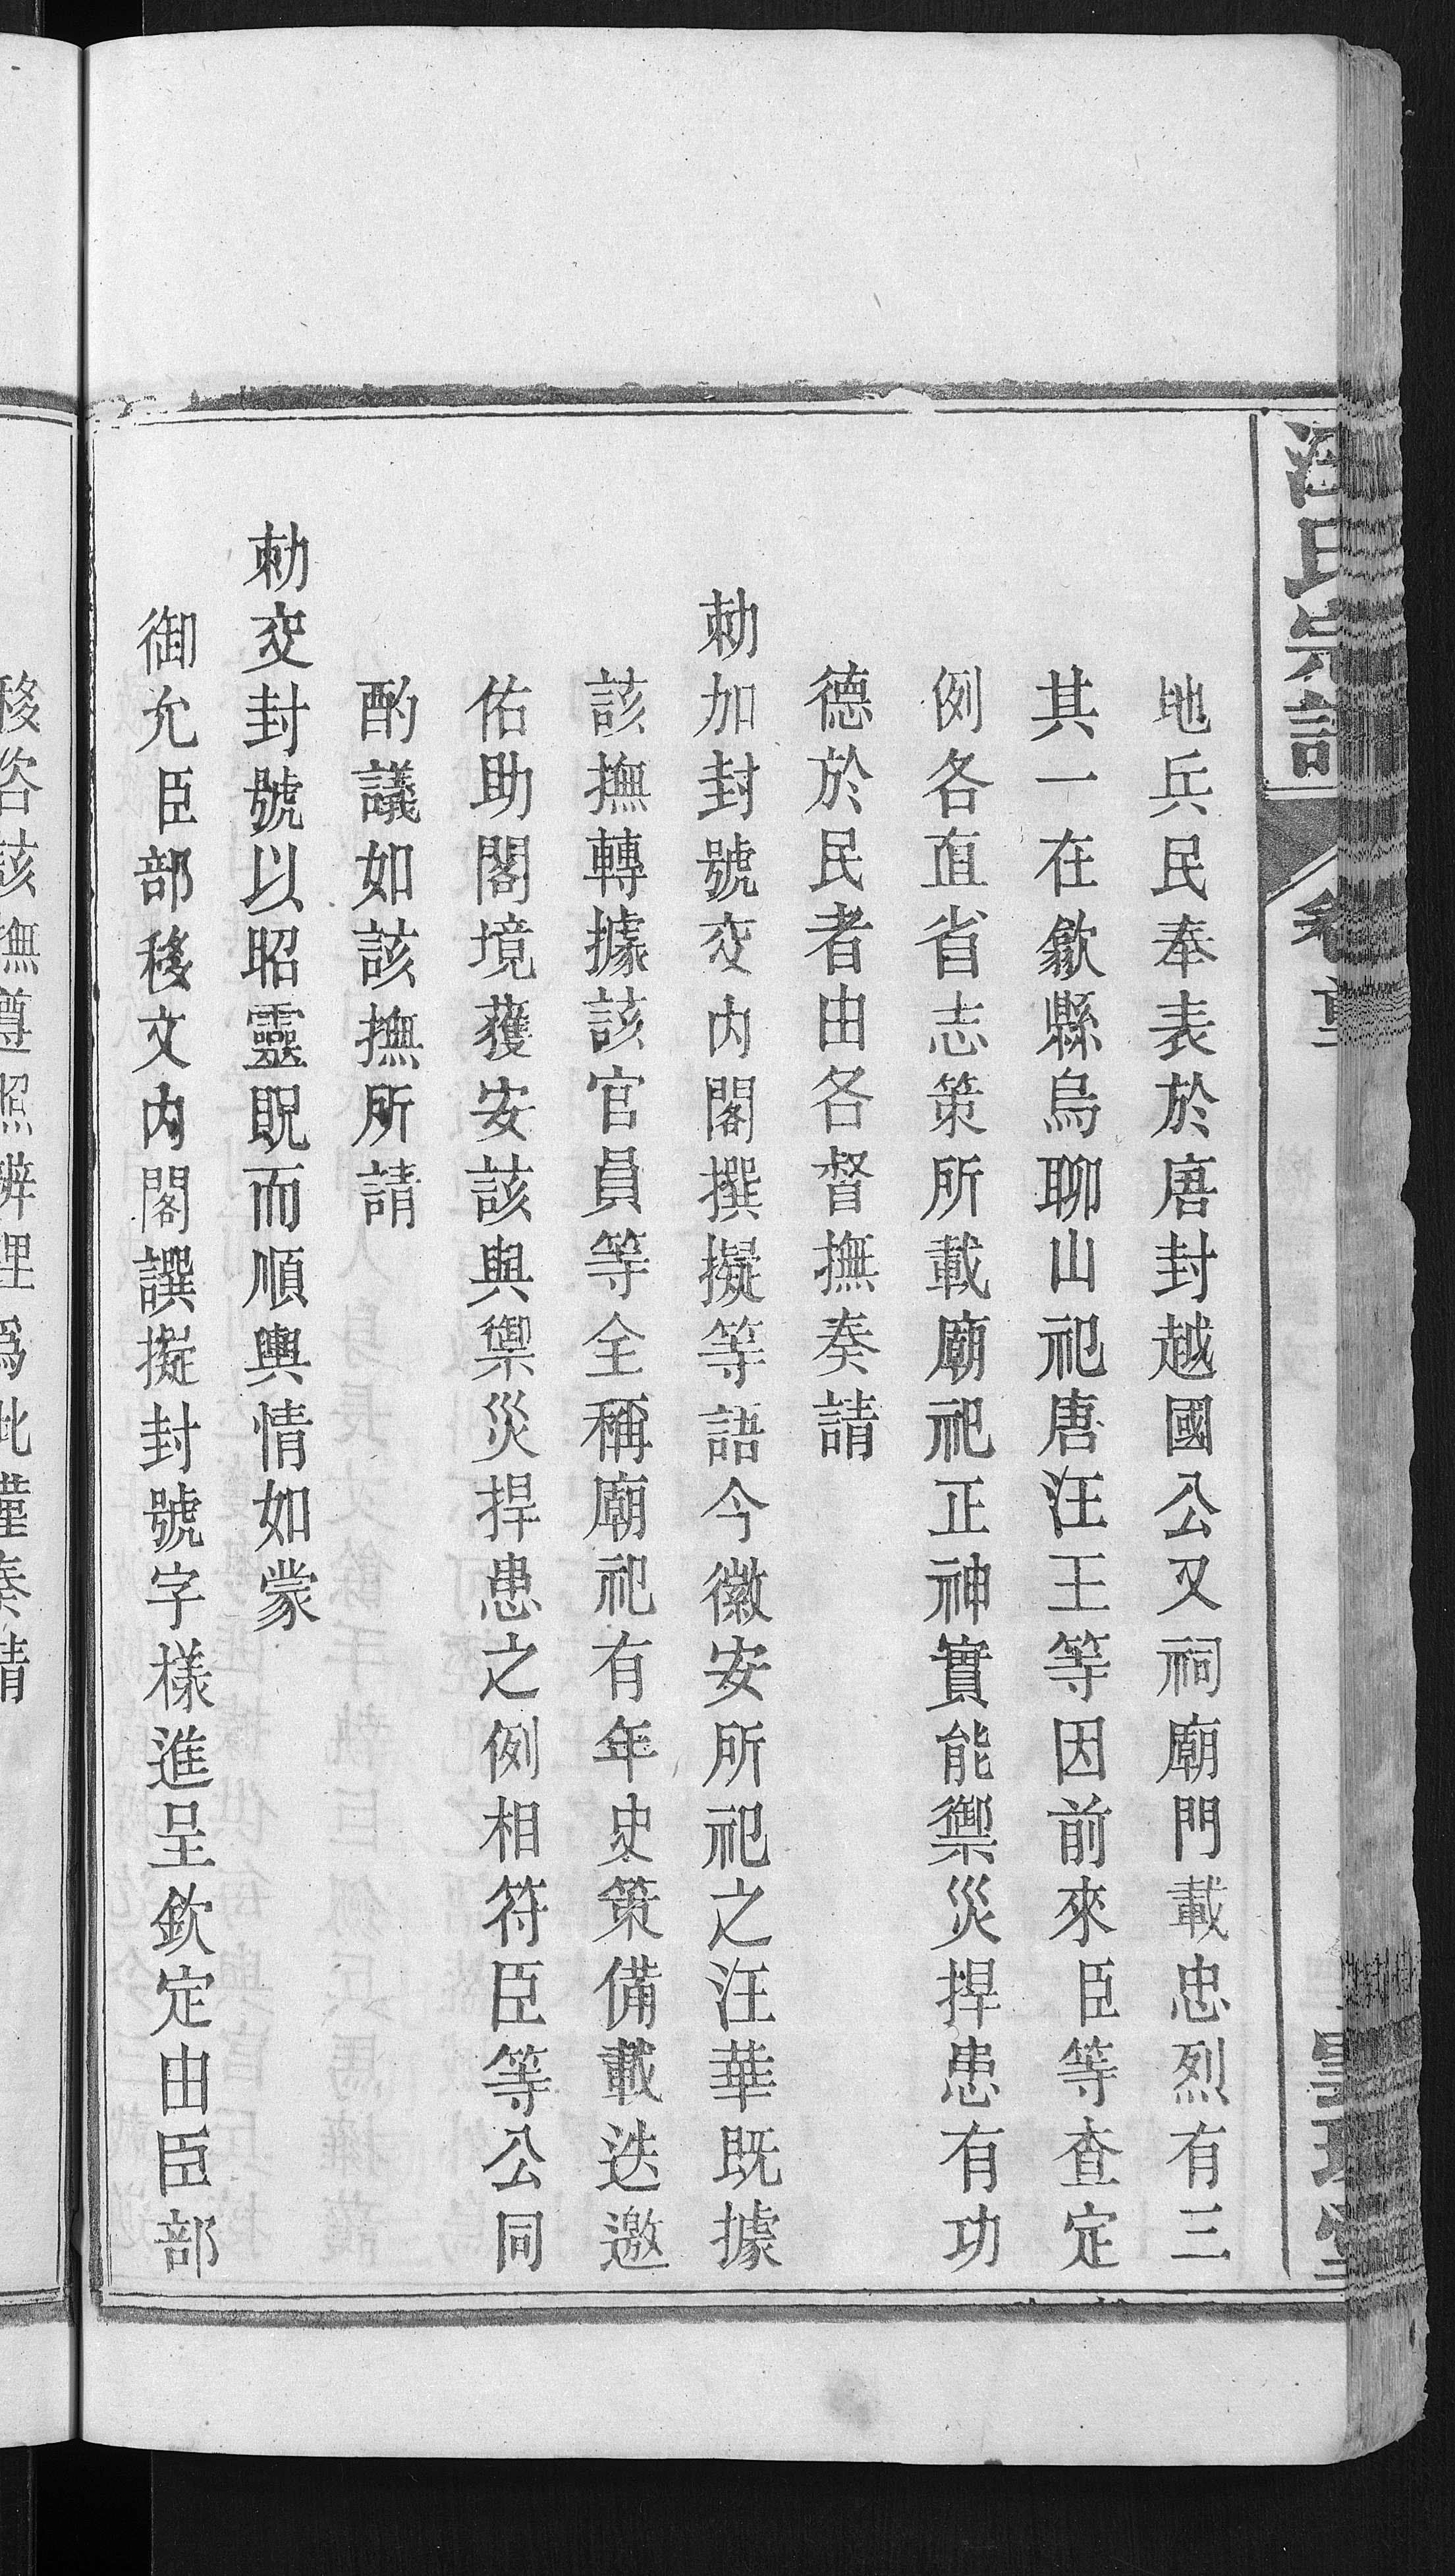 汪氏宗譜
地兵民奉表於唐封越國公又祠廟門載忠烈有三
其一在歙縣烏聊山祀唐汪王等因前來臣等查定
例各直省志策所載廟祀正神實能禦災捍患有功
德於民者由各督撫奏請
勅加封號交內閣撰擬等語今徽安所祀之汪華既據
該撫轉據該官員等全稱廟祀有年史策備載迭邀
佑助閤境獲安該與禦災捍患之例相符臣等公同
酌議如該撫所請
勅交封號以昭靈貺而順輿情如蒙
御允臣部移文內閣譔擬封號字樣進呈欽定由臣部
移咨該撫遵照辦理爲此謹奏請